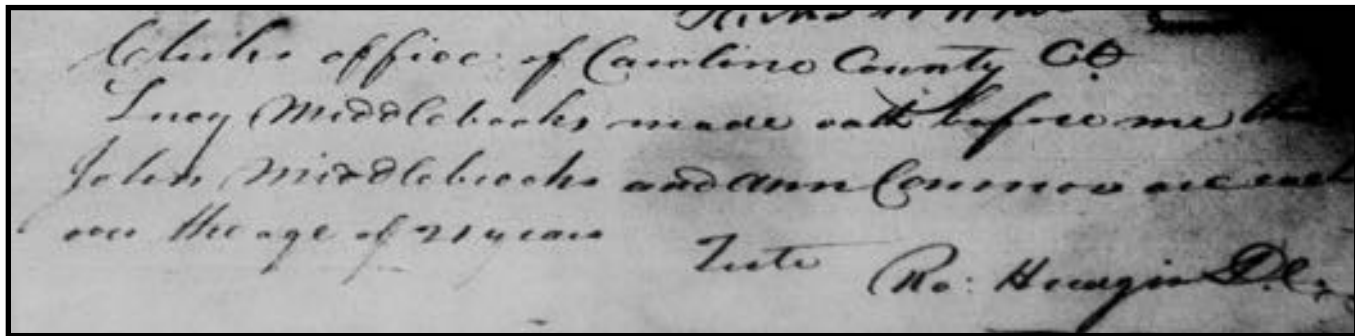 Clerks office of Caroline County Ct
Lucy Middlebrooks made oath before me th
John Middlebrooks and Ann Connor are each
over the age of 21 years
Teste Ro: Hudgin D.C.